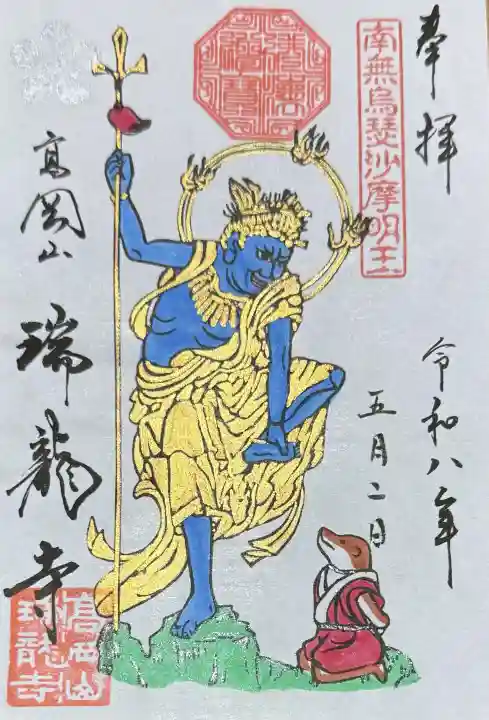 奉拝
南無烏瑟沙摩明王
令和八年
五月二日
高岡山
瑞龍寺
高岡山
瑞龍寺